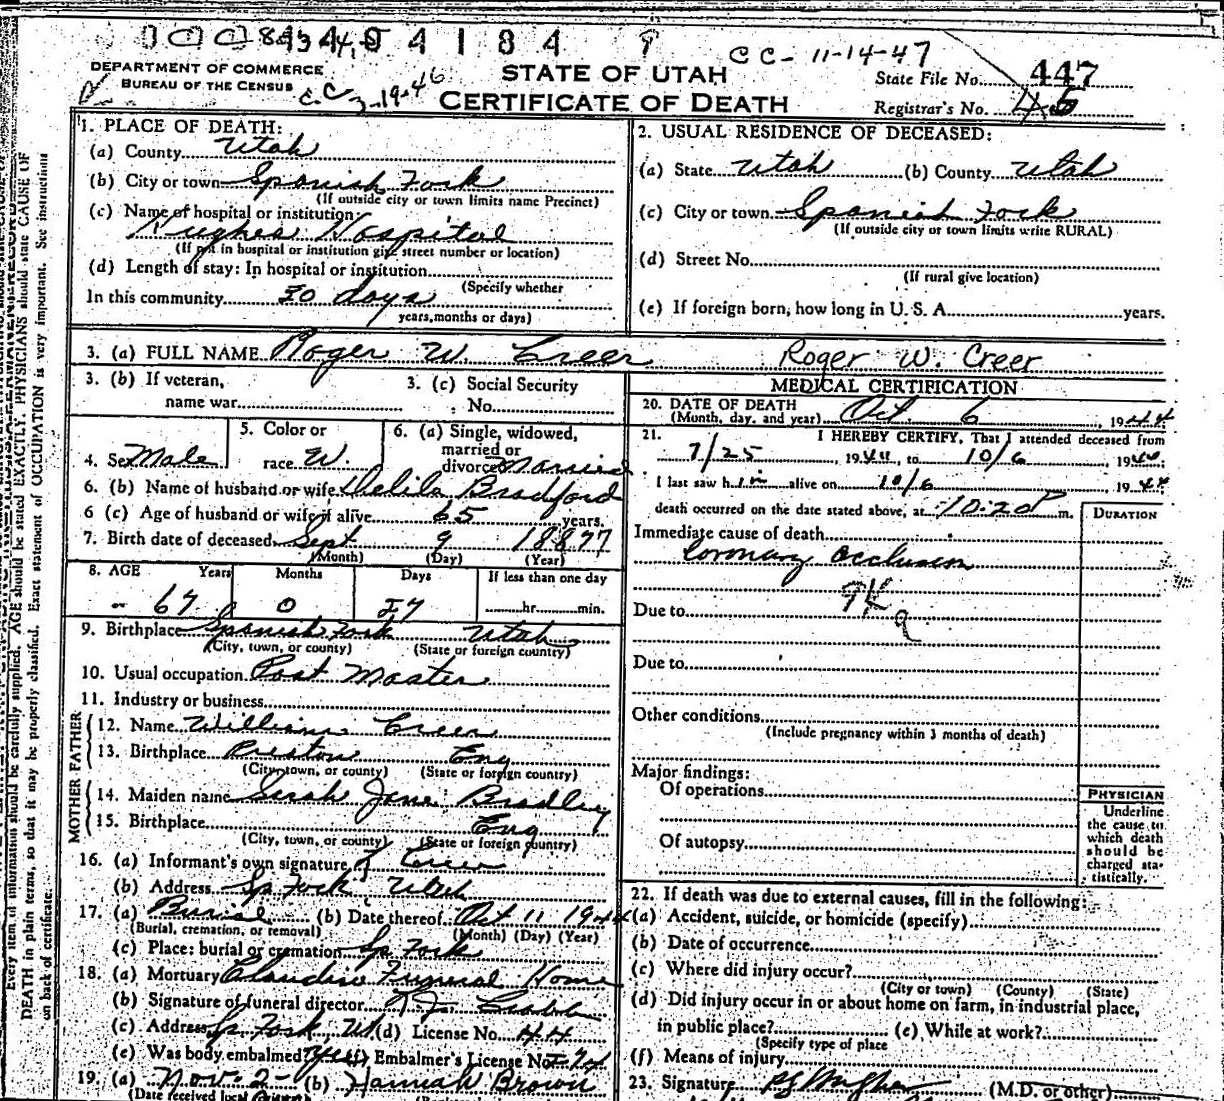 4 1 8 4
C C - 11-14-47
DEPARTMENT OF COMMERCE
BUREAU OF THE CENSUS
C.C 3-19-46
STATE OF UTAH
CERTIFICATE OF DEATH
State File No. 447
Registrar's No.
1. PLACE OF DEATH:
(a) County Utah
(b) City or town Spanish Fork
(If outside city or town limits name Precinct)
(c) Name of hospital or institution:
Hughes Hospital
(If not in hospital or institution give street number or location)
(d) Length of stay: In hospital or institution
(Specify whether
In this community 30 days
years, months or days)
2. USUAL RESIDENCE OF DECEASED:
(a) State Utah (b) County Utah
(c) City or town Spanish Fork
(If outside city or town limits write RURAL)
(d) Street No.
(If rural give location)
(e) If foreign born, how long in U. S. A. years.
3. (a) FULL NAME Roger W. Creer Roger W. Creer
3. (b) If veteran,
name war
3. (c) Social Security
No.
4. Sex Male
5. Color or
race W.
6. (a) Single, widowed,
married or
divorced Married
6. (b) Name of husband or wife Delila Bradford
6 (c) Age of husband or wife if alive 65 years.
7. Birth date of deceased Sept 9 18877
(Month) (Day) (Year)
8. AGE Years Months Days If less than one day
67 0 27 hr. min.
9. Birthplace Spanish Fork Utah
(City, town, or county) (State or foreign country)
10. Usual occupation Post Master
11. Industry or business
FATHER
12. Name William Creer
13. Birthplace Preston Eng
(City, town, or county) (State or foreign country)
MOTHER
14. Maiden name Sarah Jane Bradley
15. Birthplace Eng
(City, town, or county) (State or foreign country)
16. (a) Informant's own signature Creer
(b) Address Sp. Fork Utah
17. (a) Burial (b) Date thereof Oct 11 1944
(Burial, cremation, or removal) (Month) (Day) (Year)
(c) Place: burial or cremation Sp. Fork
18. (a) Mortuary Claudin Funeral Home
(b) Signature of funeral director
(c) Address Sp. Fork, Ut (d) License No. 44
(e) Was body embalmed? Yes Embalmer's License No. 274
19. (a) Nov. 2- (b) Hannah Brown
(Date received local
MEDICAL CERTIFICATION
20. DATE OF DEATH
(Month, day, and year) Oct 6 1944
21. I HEREBY CERTIFY, That I attended deceased from
7/25 1944, to 10/6, 1944
I last saw him alive on 10/6 1944
death occurred on the date stated above, at 10:20 P m.
DURATION
Immediate cause of death
Coronary Occlusion
Due to
94 a
Due to
Other conditions
(Include pregnancy within 3 months of death)
Major findings:
Of operations
Of autopsy
PHYSICIAN
Underline
the cause to
which death
should be
charged sta-
tistically.
22. If death was due to external causes, fill in the following:
(a) Accident, suicide, or homicide (specify)
(b) Date of occurrence
(c) Where did injury occur?
(City or town) (County) (State)
(d) Did injury occur in or about home on farm, in industrial place,
in public place? (e) While at work?
(Specify type of place
(f) Means of injury
23. Signature (M.D. or other)
Every item of information should be carefully supplied. AGE should be stated EXACTLY. PHYSICIANS should state CAUSE OF
DEATH in plain terms, so that it may be properly classified. Exact statement of OCCUPATION is very important. See instructions
on back of certificate.